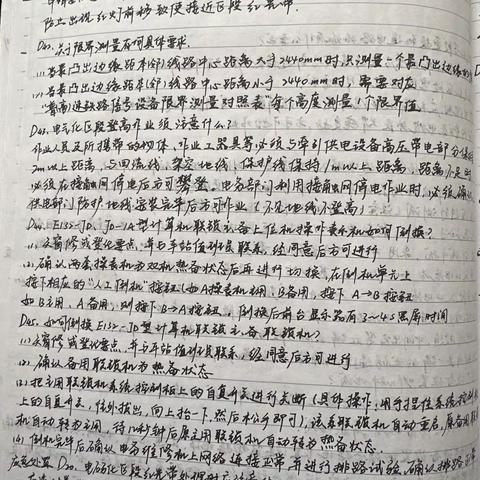 防止出现红灯前移致使接近区段红光带.
D02. 关于限界测量有何具体要求.
(1). 当最凸出边缘距本(邻)线路中心距离大于2440mm时,只测量一个最凸出边缘的
(2). 当最凸出边缘距本(邻)线路中心距离小于2440mm时,需要对应
"普(高)速铁路信号设备限界测量对照表"每个高度测量1个限界值
D03. 电气化区段登高作业须注意什么?
作业人员及所携带的物体、作业工器具等必须与牵引供电设备高压带电部分保持
2m以上距离,与回流线、架空地线、保护线保持1m以上距离,距离不足时
必须在接触网停电后方可攀登,电务部门利用接触网停电作业时,必须确认
供电部门防护地线安装完毕后方可作业(不见地线不登高)
D04. EI32-JD、JD-1A型计算机联锁主备上位机操作表示机如何倒换?
(1). 天窗修或登记要点,并与车站值班员联系,经同意后方可进行
(2). 确认两套操表机为双机热备状态后再进行切换,在倒机单元上
按下相应的"人工倒机"按钮(如A操表机主用,B备用,按下A→B按钮
如B主用,A备用,则按下B→A按钮),倒换后前台显示器有3~4s黑屏时间
D05. 如何倒换EI32-JD型计算机联锁主备联锁机?
(1). 天窗修或登记要点,并与车站值班员联系,经同意后方可进行
(2). 确认备用联锁机为热备状态
(3). 把主用联锁机系统控制板上的自复开关进行关断(具体操作:用手捏住系统控制
上的自复开关,往外拔出,向上抬一下,然后松手即可),该系联锁机自动重启,原备联锁
机自动转为主用,待10秒钟后原主用联锁机自动转为热备状态.
(4). 倒机完毕后确认电务维修机上网络连接正常并进行排路试验,确认排路正常
应急处置 D20. 电码化区段红光带处理时应注意什